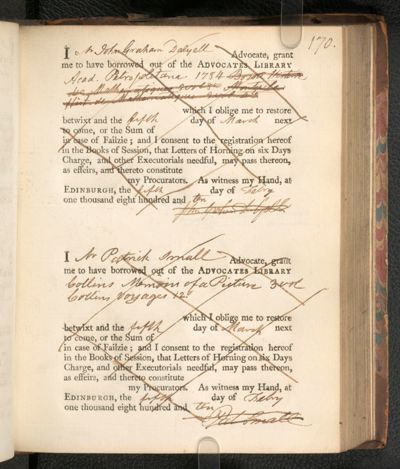 170.
I Mr John Graham Dalyell Advocate, grant
me to have borrowed out of the ADVOCATES LIBRARY
Acad. Petropolitana 1784
which I oblige me to restore
betwixt and the fifth day of March next
to come, or the Sum of
in case of Failzie; and I consent to the registration hereof
in the Books of Session, that Letters of Horning on six Days
Charge, and other Executorials needful, may pass thereon,
as effeirs, and thereto constitute
my Procurators. As witness my Hand, at
EDINBURGH, the fifth day of Feby
one thousand eight hundred and ten
John Graham Dalyell
I Mr Patrick Small Advocate, grant
me to have borrowed out of the ADVOCATES LIBRARY
Collins Memoirs of a Picture 3 vol
Collins Voyages 12º
which I oblige me to restore
betwixt and the fifth day of March next
to come, or the Sum of
in case of Failzie; and I consent to the registration hereof
in the Books of Session, that Letters of Horning on six Days
Charge, and other Executorials needful, may pass thereon,
as effeirs, and thereto constitute
my Procurators. As witness my Hand, at
EDINBURGH, the fifth day of Feby
one thousand eight hundred and ten
Pat Small